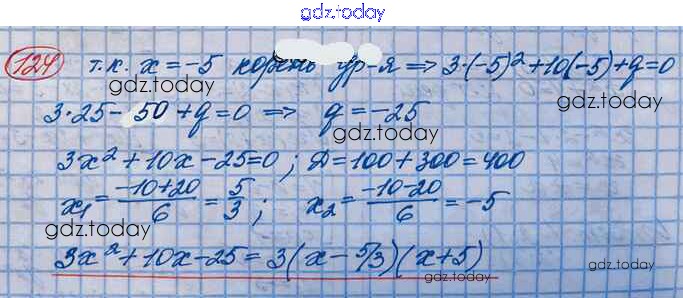 gdz.today
124 т.к. x = -5 корень ур-я ⇒ 3·(-5)² + 10(-5) + q = 0
gdz.today
gdz.today
3·25 - 50 + q = 0 ⇒ q = -25
gdz.today
3x² + 10x - 25 = 0 ; Д = 100 + 300 = 400
x₁ = (-10+20)/6 = 5/3 ; x₂ = (-10-20)/6 = -5
gdz.today
gdz.today
3x² + 10x - 25 = 3(x - 5/3)(x + 5)
gdz.today
gdz.today